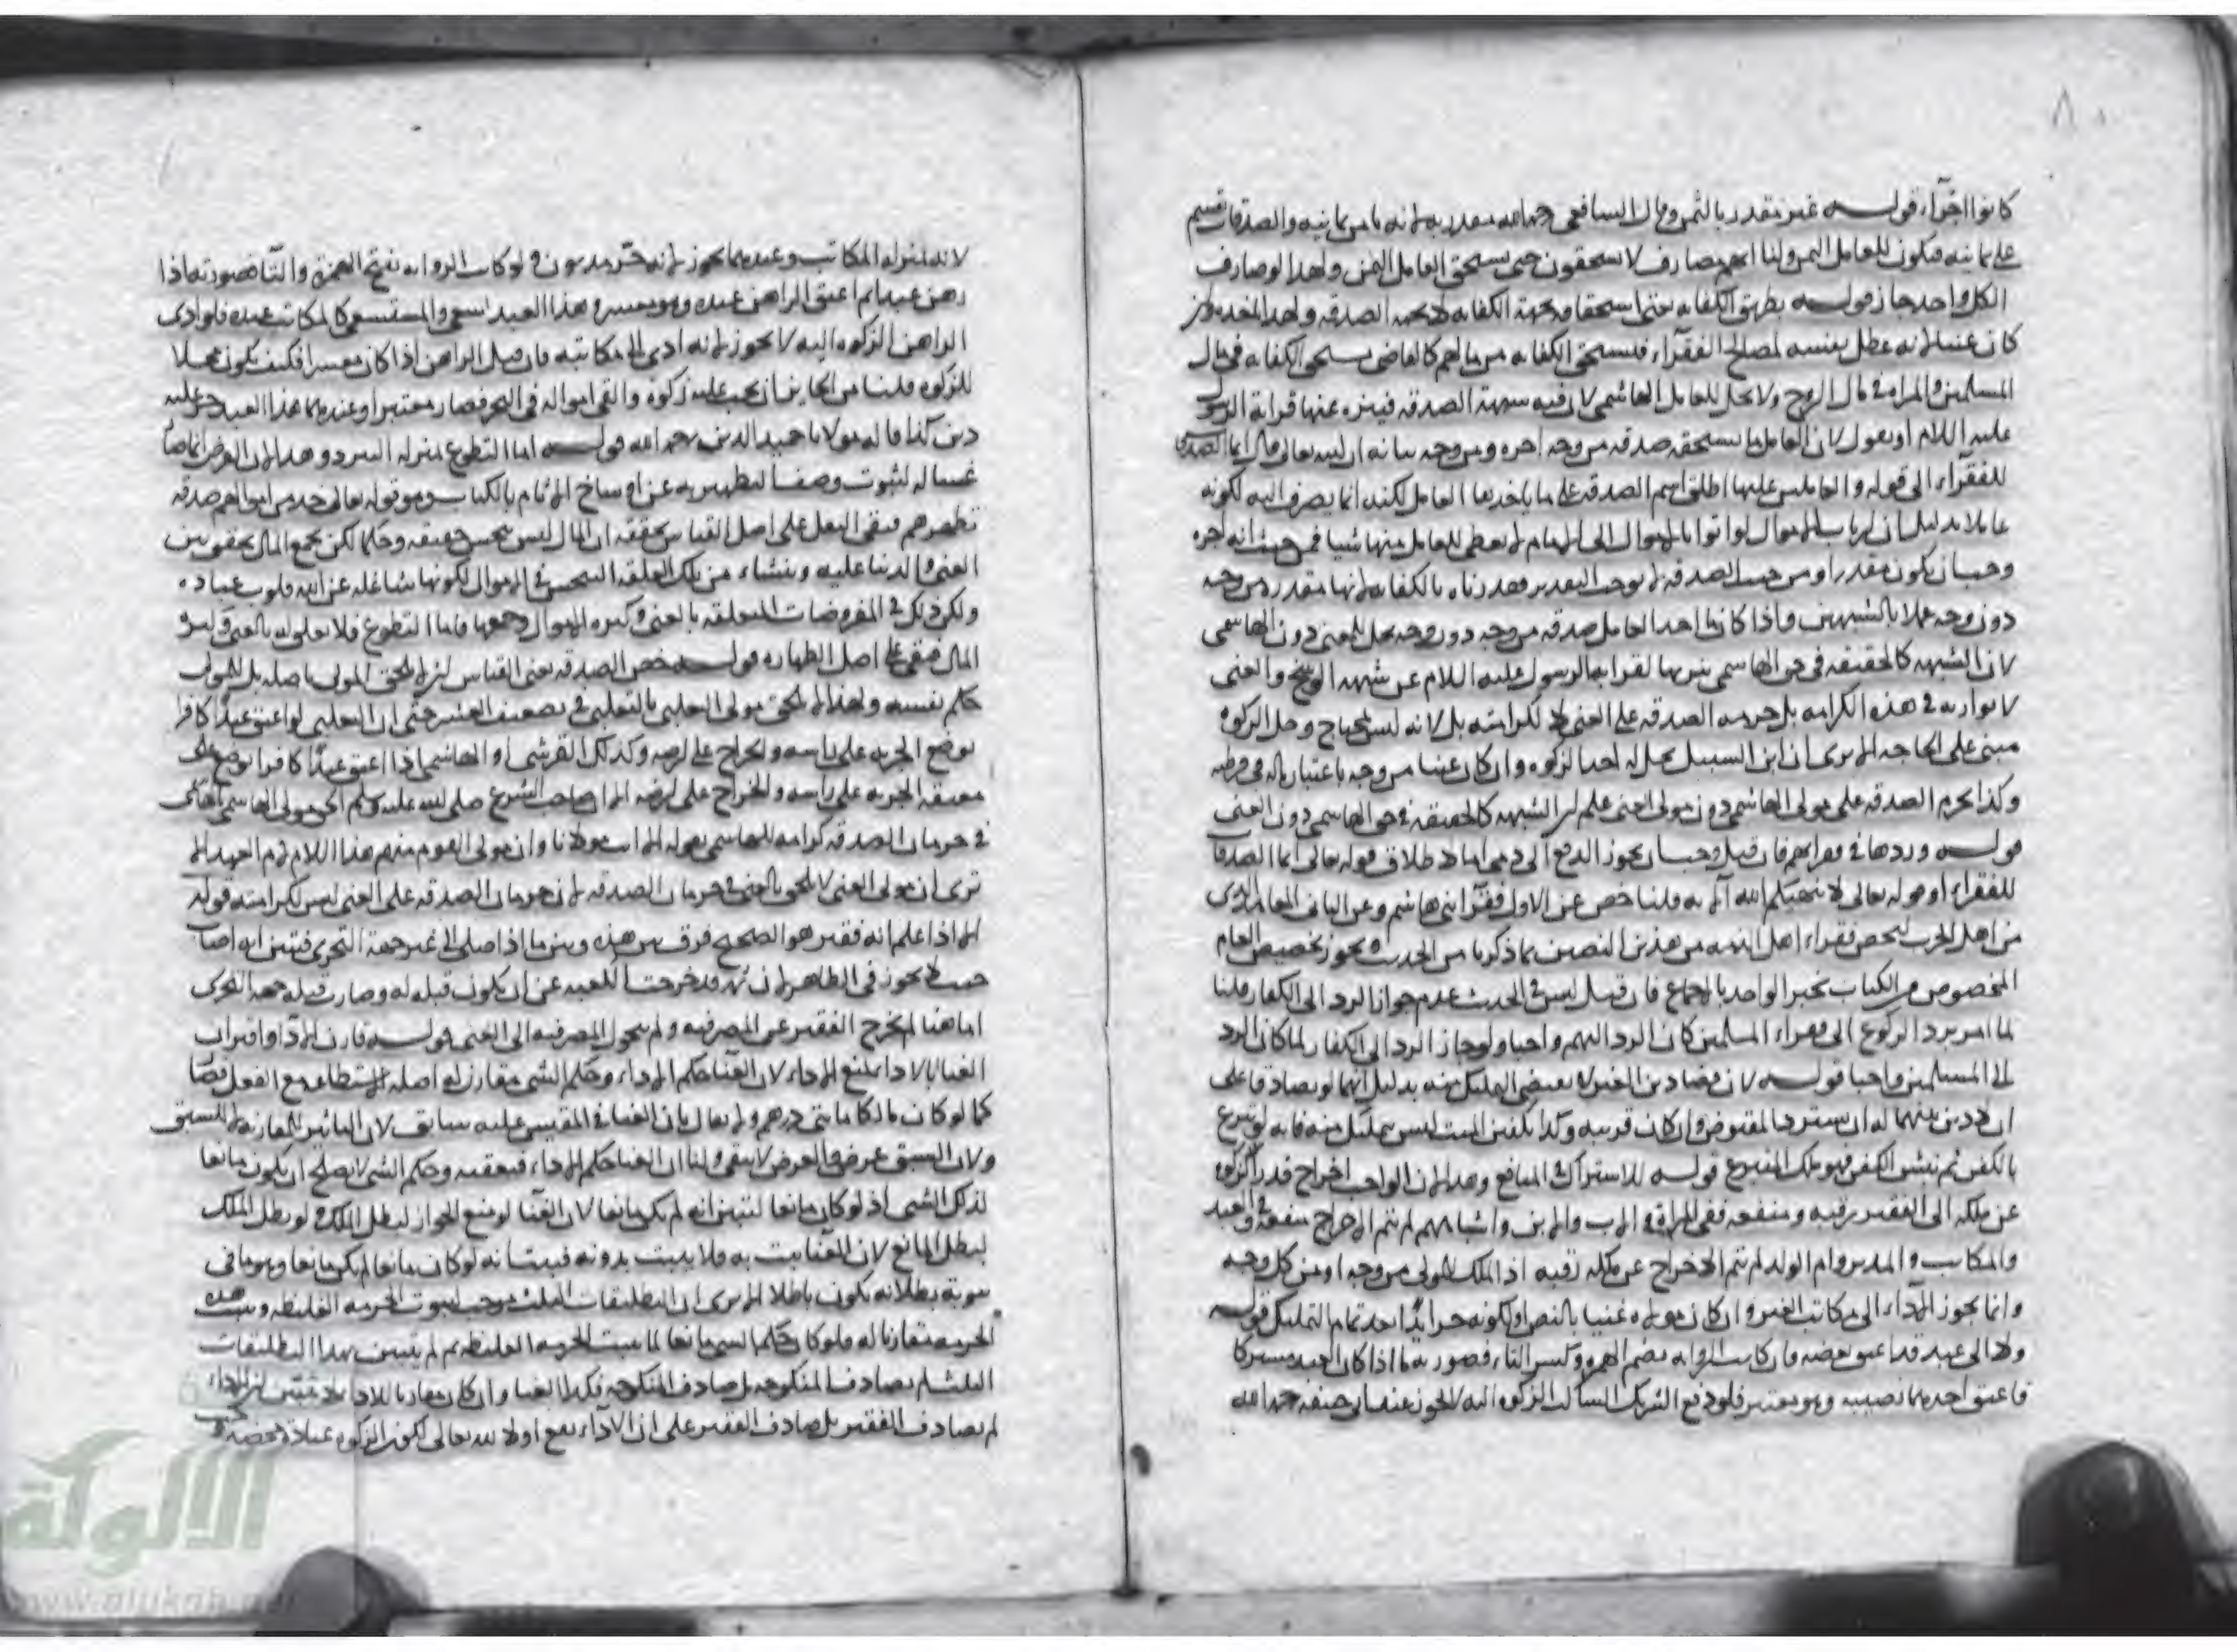 ٨٠
كانوا اجراء قوله غير مقدر بالثمن وقال الشافعي رحمه الله مقدر به لانه ثامن ثمانية والصدقات تقسم
على ثمانية فيكون للعامل الثمن ولنا انهم مصارف لا مستحقون حتى يستحق العامل الثمن ولهذا لو صرف
الكل واحد جاز قوله بطريق الكفاية حتى استحقاقه بجهة الكفاية لا بجهة الصدقة ولهذا ياخذ وان
كان غنيا لانه عطل نفسه لمصالح الفقراء فيستحق الكفاية من مالهم كالقاضي يستحق الكفاية في مال
المسلمين والمراة في مال الزوج ولا يحل للعامل الهاشمي لان فيه شبهة الصدقة فينزه عنها قرابة الرسول
عليه السلام او نقول لان العامل ما يستحقه صدقة من وجه اجرة ومن وجه بيانه ان الله تعالى قال انما الصدقات
للفقراء الى قوله والعاملين عليها اطلق اسم الصدقة على ما ياخذ هذا العامل لكنه انما يصرف اليه لكونه
عاملا بدليل ان ارباب الاموال لو اتوا بالاموال الى الامام لا يعطى للعامل منها شيا فمن حيث انه اجرة
وجب ان يكون مقدرا ومن حيث الصدقة لا يوجب التقدير فقدرناه بالكفاية لانها مقدرة من وجه
دون وجه عملا بالشبهين واذا كان ما اخذ العامل صدقة من وجه دون وجه يحل للغني دون الهاشمي
لان الشبهة كالحقيقة في حق الهاشمي تنزيها لقرابة الرسول عليه السلام عن شبهة الوسخ والغني
لا يوازيه في هذه الكرامة بل حرمة الصدقة على الغني لا لكرامته بل لانه ليس بمحتاج وحل الزكوة
مبني على الحاجة الا يرى ان ابن السبيل يحل له اخذ الزكوة وان كان غنيا من وجه باعتبار ماله في وطنه
وكذا يحرم الصدقة على مولى الهاشمي دون مولى الغني علم ان الشبهة كالحقيقة في حق الهاشمي دون الغني
قوله وردها في فقرائهم فان قيل وجب ان يجوز الدفع الى ذمي اما لاطلاق قوله تعالى انما الصدقات
للفقراء او قوله تعالى لا ينهيكم الله الآية قلنا خص عن الاول فقراء بني هاشم وعن الثاني المعاند الذي
من اهل الحرب فيخص فقراء اهل الذمة من هذين النصين بما ذكرنا من الحديث ويجوز تخصيص العام
المخصوص من الكتاب بخبر الواحد بالاجماع فان قيل ليس في الحديث عدم جواز الرد الى الكفار قلنا
لما امر برد الزكوة الى فقراء المسلمين كان الرد اليهم واجبا ولو جاز الرد الى الكفار لما كان الرد
الى المسلمين واجبا قوله لان قضا دين الغير لا يقتضي التمليك منه بدليل انهما لو تصادقا على
ان لا دين بينهما له ان يسترد المقبوض وان كان قريبه وكذا تكفين الميت ليس بتمليك منه فانه لو تبرع
بالكفن ثم نبش الكفن فهو ملك المتبرع قوله للاشتراك في المنافع وهذا لان الواجب اخراج قدر الزكوة
عن ملكه الى الفقير رقبة ومنفعة ففي المراة والاب والابن واشباههم لم يتم الاخراج منفعة وفي العبد
والمكاتب والمدبر وام الولد لم يتم الاخراج عن ملكه رقبة اذ الملك للمولى من وجه او من كل وجه
وانما يجوز الاداء الى مكاتب الغير وان كان مولاه غنيا بالنص او لكونه حرا يدا بعد تمام التمليك قوله
ولا الى عبد قد اعتق بعضه فان كانت الرواية بضم الهمزة وكسر التاء فصورته ما اذا كان العبد مشتركا
فاعتق احدهما نصيبه وهو معسر فلو دفع الشريك الساكت الزكوة اليه لا يجوز عند ابي حنيفة رحمه الله
لانه بمنزلة المكاتب وعندهما يجوز لانه حر مديون ولو كانت الرواية بفتح الهمزة والتا فصورته اذا
رهن عبدا ثم اعتق الراهن عبده وهو معسر وهذا العبد يسعى والمستسعى كالمكاتب عنده فلو ادى
الراهن الزكوة اليه لا يجوز لانه ادى الى مكاتبه فان قيل الراهن اذا كان معسرا فكيف يكون محلا
للزكوة قلنا من الجايز ان يجب عليه زكوة والقى امواله في البحر فصار معسرا وعندهما هذا العبد حر عليه
دين كذا قاله مولانا حميد الدين رحمه الله قوله اما التطوع بمنزلة التبرد وهذا لان الفرض انما صار
غسالة لثبوت وصف التطهير به عن اوساخ الاثام بالكتاب وهو قوله تعالى خذ من اموالهم صدقة
تطهرهم فبقي النفل على اصل القياس يحققه ان المال ليس بنجس حقيقة وحكما لكن بجمع المال يحقق بين
الغني والدنيا علاقة وينشاء من تلك العلقة التنجس في الاموال لكونها شاغلة عن الله قلوب عباده
ولكن ذلك في المفروضات المتعلقة بالغنى وكثرة الاموال وجمعها فاما التطوع فلا تعلق له بالغنى وكثرة
المال فبقي على اصل الطهارة قوله خص الصدقة يعني القياس ان لا يلحق المولى باصله بل للمولى
حكم نفسه ولهذا لم يلحق مولى التغلبي بالتغلبي في تضعيف العشر حتى ان التغلبي لو اعتق عبدا كافرا
توضع الجزية على راسه والخراج على ارضه وكذلك القرشي او الهاشمي اذا اعتق عبدا كافرا توضع على
معتقه الجزية على راسه والخراج على ارضه الا ان صاحب الشرع صلى الله عليه وسلم الحق مولى الهاشمي بالهاشمي
في حرمان الصدقة كرامة للهاشمي بقوله الا انت مولانا وان مولى القوم منهم هذا اللام لام العهد الا
ترى ان مولى الغني لا يلحق بالغني في حرمان الصدقة لان حرمان الصدقة على الغني ليس لكرامته قوله
الا اذا علم انه فقير هو الصحيح فرق بين هذه وبين ما اذا صلى الى غير جهة التحري فتبين انه اصاب
حيث لا يجوز في الظاهر لان ثمة قد خرجت الكعبة عن ان يكون قبلة له وصارت قبلته جهة التحري
اما هنا لم يخرج الفقير عن المصرفية ولم يتحول المصرفية الى الغني قوله قارن الاداء واقتران
الغنا بالاداء يمنع الاداء لان الغنا حكم الاداء وحكم الشي مقارن له اصله الاستطاعة مع الفعل فصار
كما لو كان مالكا مائتي درهم ولا يقال بان الغنا في المقيس عليه سابق لان التاثير للمقارنة لا للسبق
ولان السبق عرض والعرض لا يبقى ولنا ان الغنا حكم الاداء فيعقبه وحكم الشي لا يصلح ان يكون مانعا
لذلك الشي اذ لو كان مانعا لتبين انه لم يكن مانعا لان الغنا لو منع الجواز لبطل الملك ولو بطل الملك
لبطل المانع لان الغنا يثبت به فلا يثبت بدونه فيثبت انه لو كان مانعا لم يكن مانعا وهو ما في
ثبوته بطلانه يكون باطلا الا يرى ان التطليقات الثلث موجب لثبوت الحرمة الغليظة وتثبت هذه
الحرمة مقارنا له فلو كان حكم الشي مانعا لما يثبت الحرمة الغليظة ثم لم يتبين بهذا التطليقات
الثلث لم يصادف المنكوحة بل صادف المنكوحة فكذا الغنا وان كان مقارنا للاداء لا يتبين ان الاداء
لم يصادف الفقير بل صادف الفقير على ان الاداء يقع اولا لله تعالى لكون الزكوة عبادة محضة
الالوكة